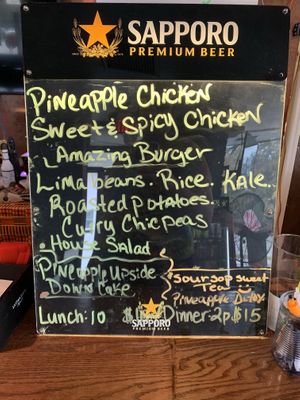 SAPPORO
PREMIUM BEER
Pineapple Chicken
Sweet & Spicy Chicken
Amazing Burger
Lima beans. Rice. Kale.
Roasted Potatoes.
Curry Chic peas
House Salad
Pineapple Upside
Down Cake
Soursop Sweet
Tea
Pineapple Detox
SAPPORO
PREMIUM BEER
Lunch: 10
Dinner: 2p $15